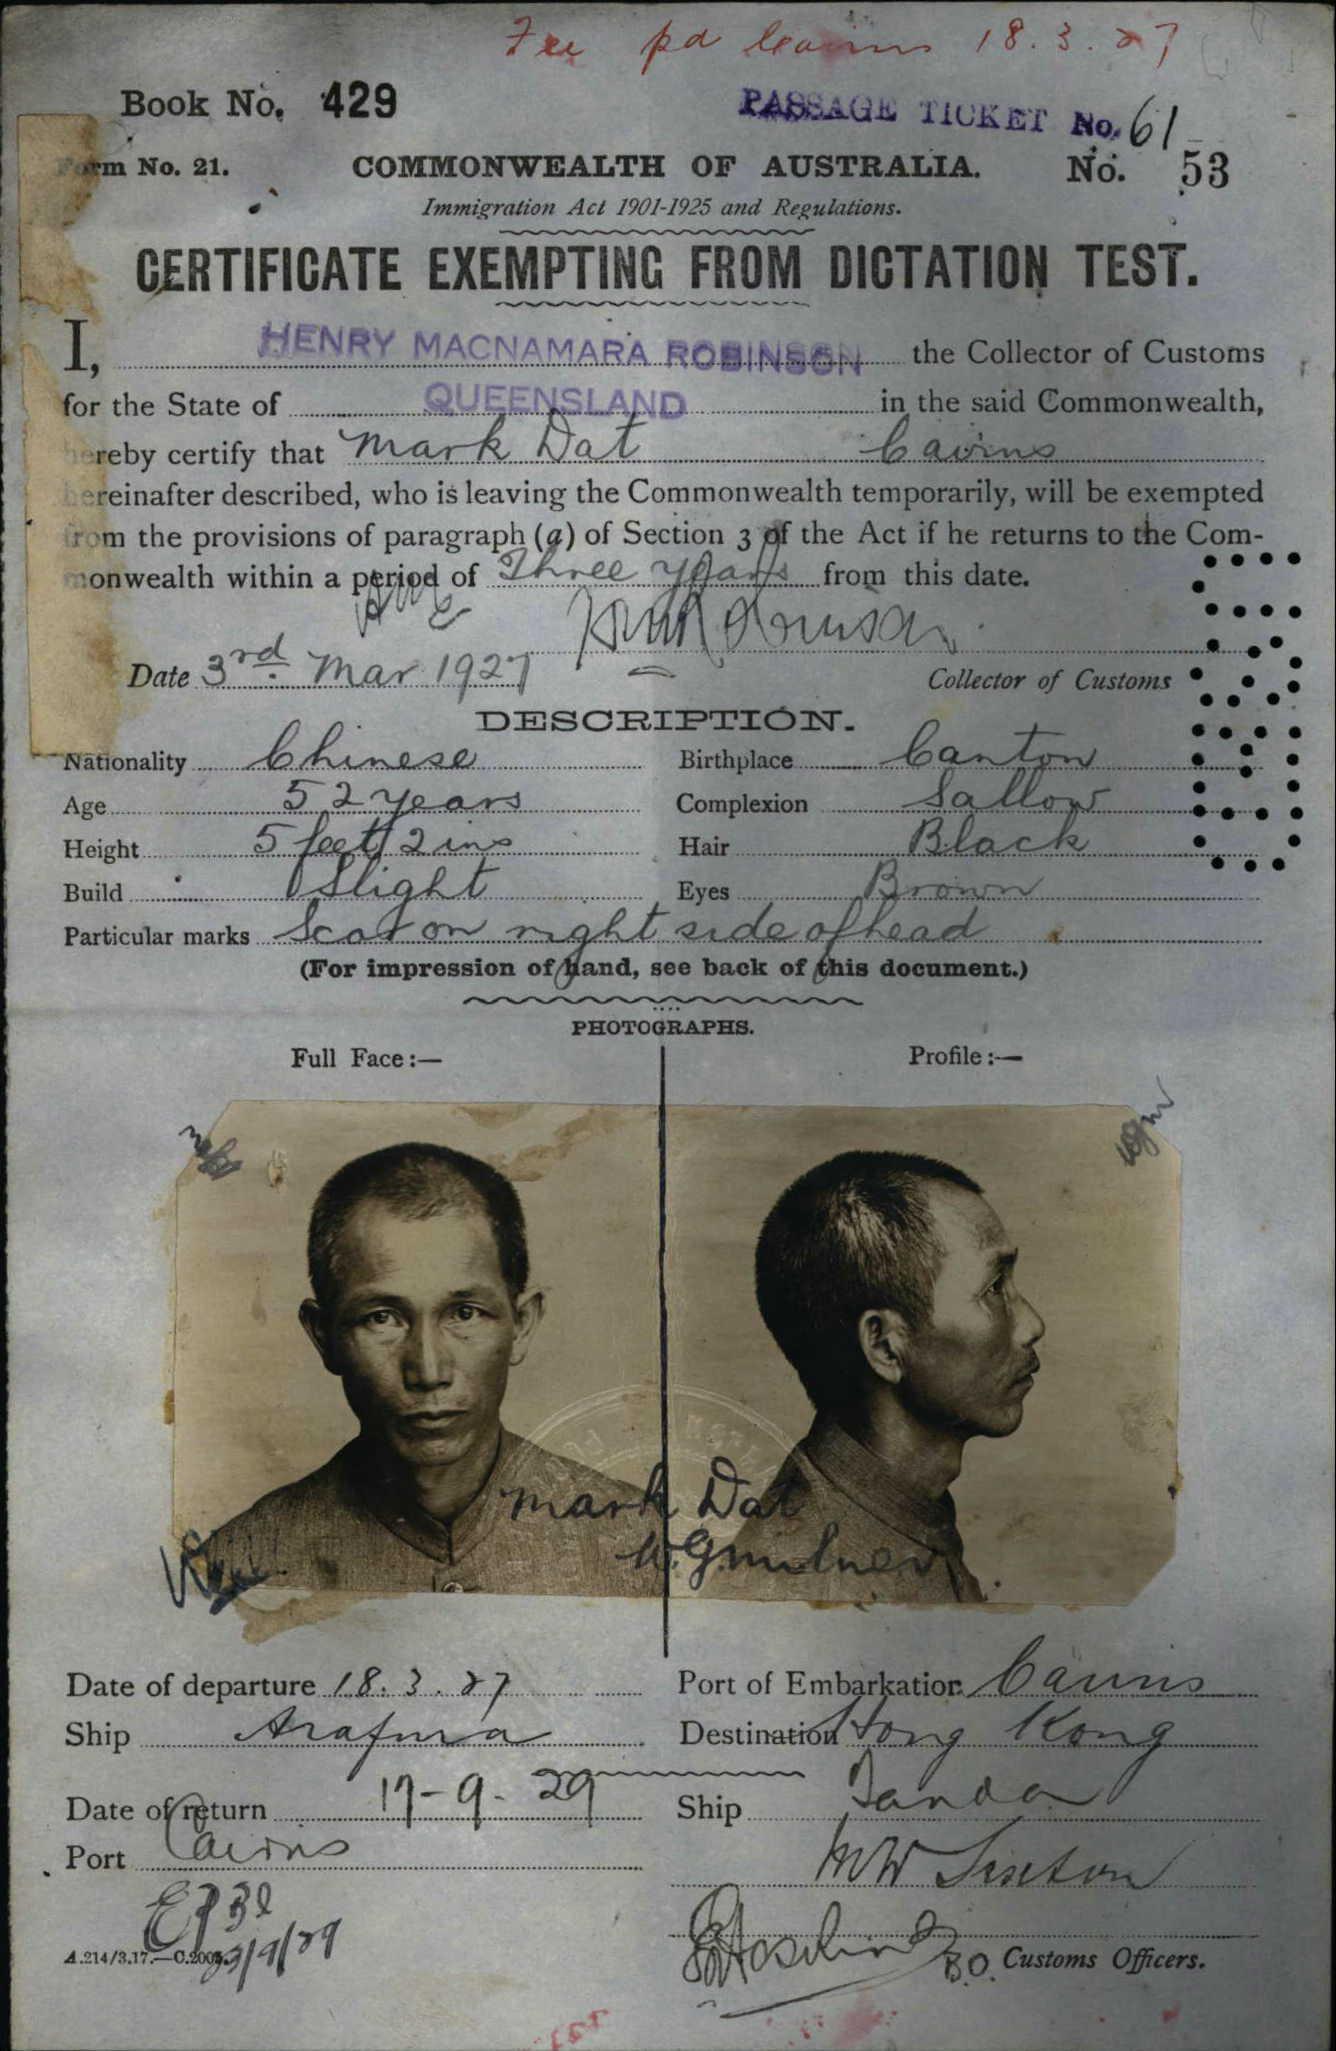 Fee pd Cairns 18.3.27
Book No. 429
PASSAGE TICKET No. 61
Form No. 21. COMMONWEALTH OF AUSTRALIA. No. 53
Immigration Act 1901-1925 and Regulations.
CERTIFICATE EXEMPTING FROM DICTATION TEST.
I, HENRY MACNAMARA ROBINSON the Collector of Customs
for the State of QUEENSLAND in the said Commonwealth,
hereby certify that Mark Dat Cairns
hereinafter described, who is leaving the Commonwealth temporarily, will be exempted
from the provisions of paragraph (a) of Section 3 of the Act if he returns to the Com-
monwealth within a period of Three years from this date.
Date 3rd. Mar 1927 Collector of Customs
DESCRIPTION.
Nationality Chinese Birthplace Canton
Age 52 years Complexion Sallow
Height 5 feet 2 ins Hair Black
Build Slight Eyes Brown
Particular marks Scar on right side of head
(For impression of hand, see back of this document.)
PHOTOGRAPHS.
Full Face:— Profile:—
Mark Dat
W.G. Milner
Date of departure 18.3.27 Port of Embarkation Cairns
Ship Arafura Destination Hong Kong
Date of return 17-9-29 Ship Tanda
Port Cairns
A.214/3.17.—C.2003. 23/9/29 B.O. Customs Officers.